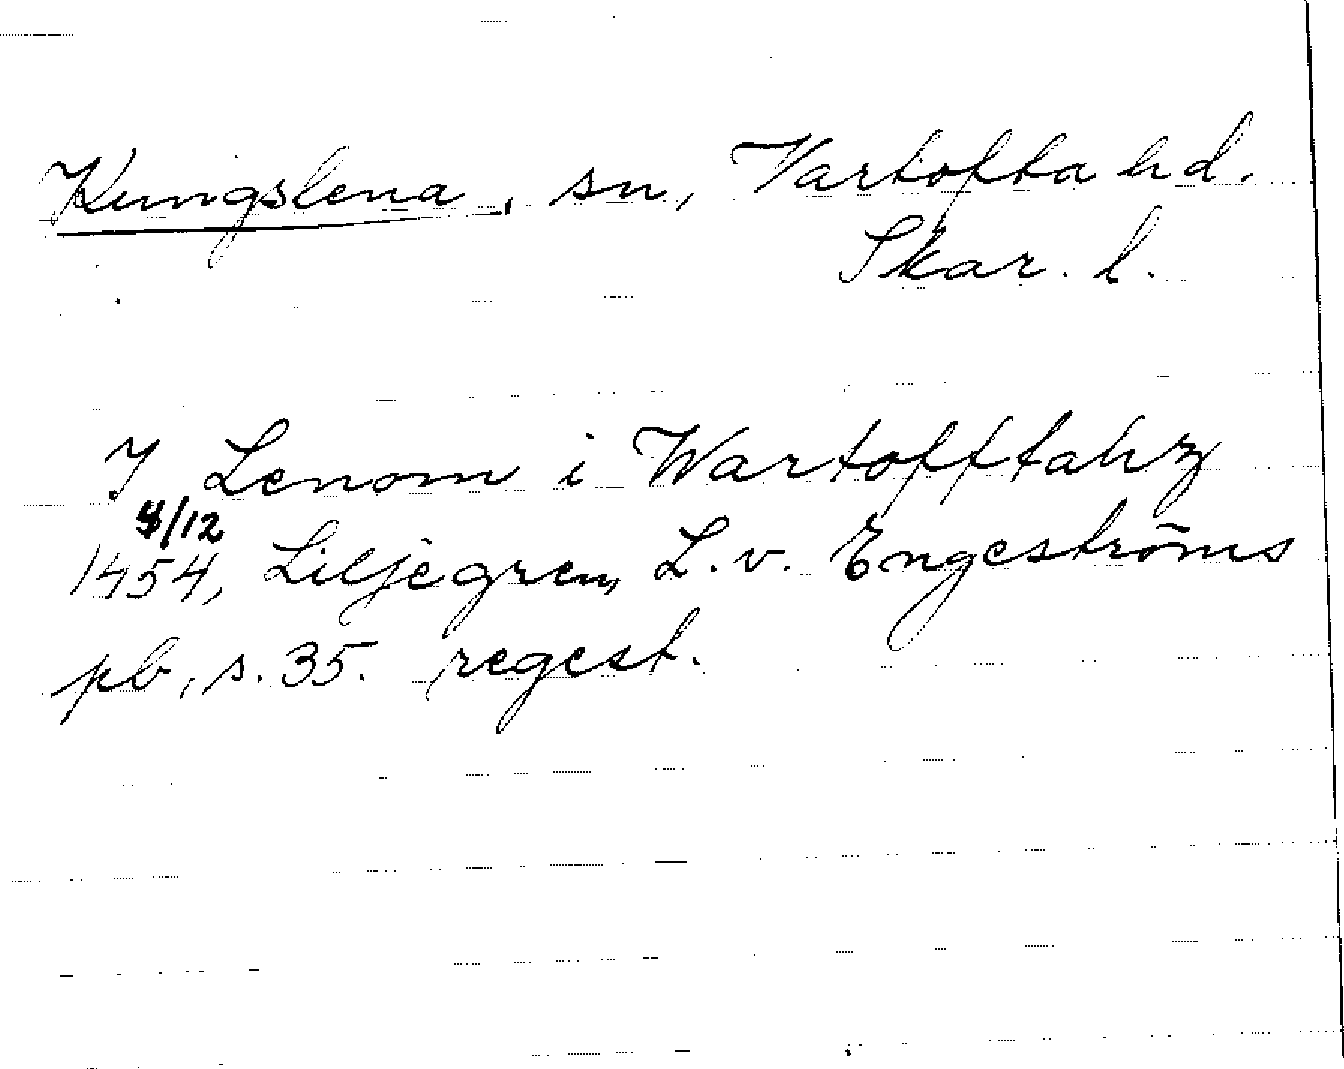 Kungslena, sn, Vartofta hd.
Skar. l.
I Lenom i Wartofftahz
1454, Liljegren, L. v. Engeströms
pb, s. 35. regest.